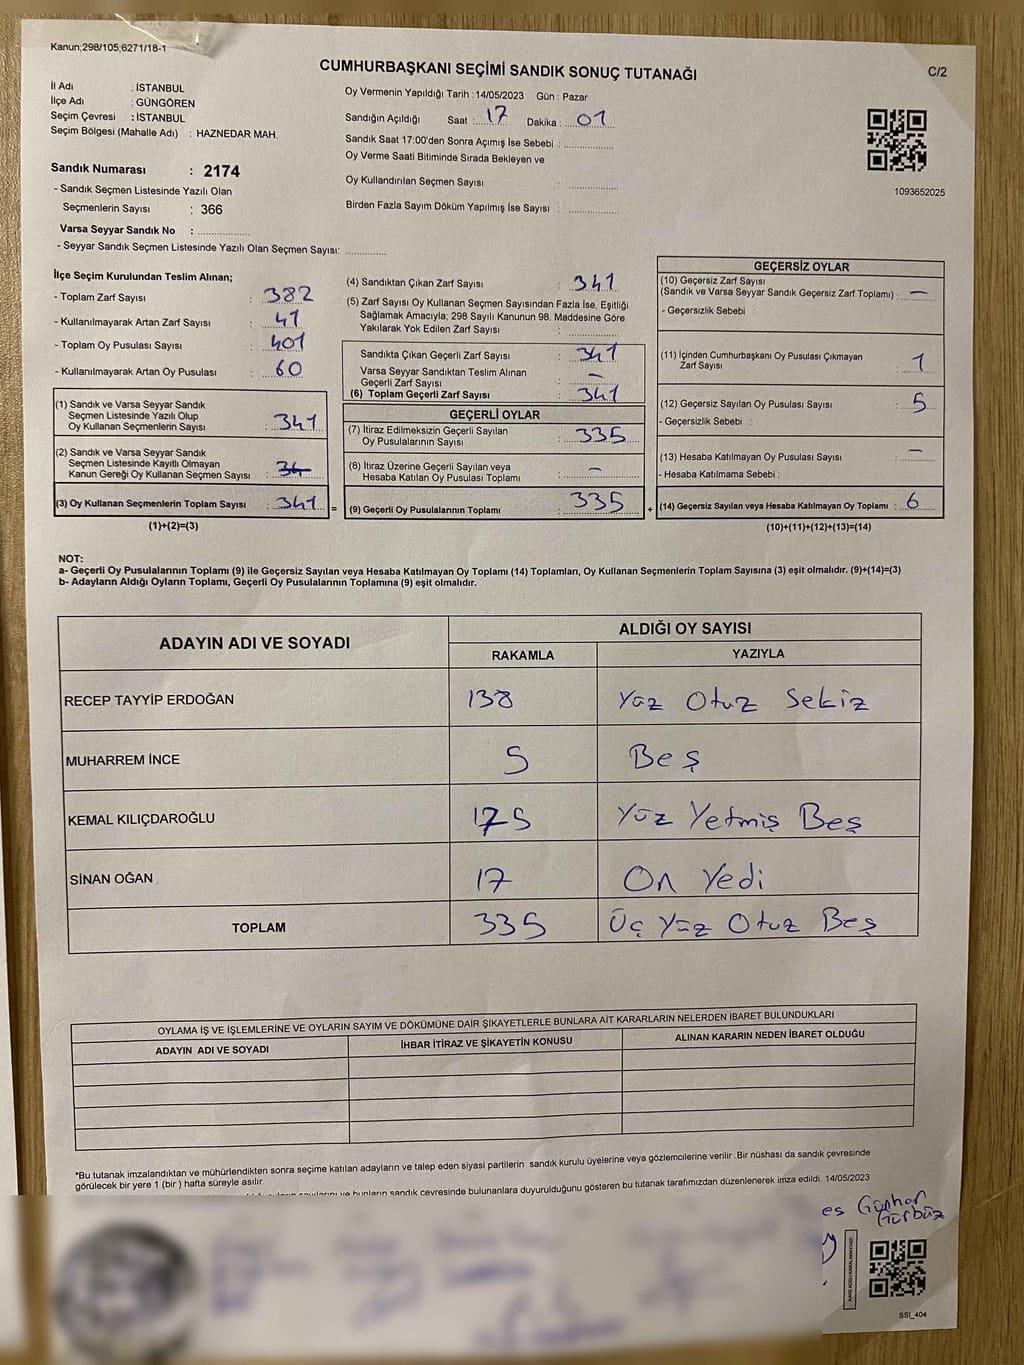 Kanun;298/105;6271/18-1
CUMHURBAŞKANI SEÇİMİ SANDIK SONUÇ TUTANAĞI
C/2
İl Adı : İSTANBUL
İlçe Adı : GÜNGÖREN
Seçim Çevresi : İSTANBUL
Seçim Bölgesi (Mahalle Adı) : HAZNEDAR MAH.
Oy Vermenin Yapıldığı Tarih :14/05/2023 Gün : Pazar
Sandığın Açıldığı Saat : 17 Dakika : 01
Sandık Saat 17:00'den Sonra Açımış İse Sebebi :
Oy Verme Saati Bitiminde Sırada Bekleyen ve
Oy Kullandırılan Seçmen Sayısı :
Birden Fazla Sayım Döküm Yapılmış İse Sayısı :
1093652025
Sandık Numarası : 2174
- Sandık Seçmen Listesinde Yazılı Olan
Seçmenlerin Sayısı : 366
Varsa Seyyar Sandık No :
- Seyyar Sandık Seçmen Listesinde Yazılı Olan Seçmen Sayısı:
İlçe Seçim Kurulundan Teslim Alınan;
- Toplam Zarf Sayısı : 382
- Kullanılmayarak Artan Zarf Sayısı : 41
- Toplam Oy Pusulası Sayısı : 401
- Kullanılmayarak Artan Oy Pusulası : 60
(1) Sandık ve Varsa Seyyar Sandık
Seçmen Listesinde Yazılı Olup
Oy Kullanan Seçmenlerin Sayısı : 341
(2) Sandık ve Varsa Seyyar Sandık
Seçmen Listesinde Kayıtlı Olmayan
Kanun Gereği Oy Kullanan Seçmen Sayısı : 34
(3) Oy Kullanan Seçmenlerin Toplam Sayısı : 341 =
(1)+(2)=(3)
(4) Sandıktan Çıkan Zarf Sayısı : 341
(5) Zarf Sayısı Oy Kullanan Seçmen Sayısından Fazla İse, Eşitliği
Sağlamak Amacıyla; 298 Sayılı Kanunun 98. Maddesine Göre
Yakılarak Yok Edilen Zarf Sayısı :
Sandıkta Çıkan Geçerli Zarf Sayısı : 341
Varsa Seyyar Sandıktan Teslim Alınan
Geçerli Zarf Sayısı : –
(6) Toplam Geçerli Zarf Sayısı : 341
GEÇERLİ OYLAR
(7) İtiraz Edilmeksizin Geçerli Sayılan
Oy Pusulalarının Sayısı : 335
(8) İtiraz Üzerine Geçerli Sayılan veya
Hesaba Katılan Oy Pusulası Toplamı : –
(9) Geçerli Oy Pusulalarının Toplamı : 335 +
GEÇERSİZ OYLAR
(10) Geçersiz Zarf Sayısı
(Sandık ve Varsa Seyyar Sandık Geçersiz Zarf Toplamı) : –
- Geçersizlik Sebebi :
(11) İçinden Cumhurbaşkanı Oy Pusulası Çıkmayan
Zarf Sayısı : 1
(12) Geçersiz Sayılan Oy Pusulası Sayısı : 5
- Geçersizlik Sebebi :
(13) Hesaba Katılmayan Oy Pusulası Sayısı : –
- Hesaba Katılmama Sebebi :
(14) Geçersiz Sayılan veya Hesaba Katılmayan Oy Toplamı : 6
(10)+(11)+(12)+(13)=(14)
NOT:
a- Geçerli Oy Pusulalarının Toplamı (9) ile Geçersiz Sayılan veya Hesaba Katılmayan Oy Toplamı (14) Toplamları, Oy Kullanan Seçmenlerin Toplam Sayısına (3) eşit olmalıdır. (9)+(14)=(3)
b- Adayların Aldığı Oyların Toplamı, Geçerli Oy Pusulalarının Toplamına (9) eşit olmalıdır.
ADAYIN ADI VE SOYADI ALDIĞI OY SAYISI
RAKAMLA YAZIYLA
RECEP TAYYİP ERDOĞAN 138 Yüz Otuz Sekiz
MUHARREM İNCE 5 Beş
KEMAL KILIÇDAROĞLU 175 Yüz Yetmiş Beş
SİNAN OĞAN 17 On Yedi
TOPLAM 335 Üç Yüz Otuz Beş
OYLAMA İŞ VE İŞLEMLERİNE VE OYLARIN SAYIM VE DÖKÜMÜNE DAİR ŞİKAYETLERLE BUNLARA AİT KARARLARIN NELERDEN İBARET BULUNDUKLARI
ADAYIN ADI VE SOYADI İHBAR İTİRAZ VE ŞİKAYETİN KONUSU ALINAN KARARIN NEDEN İBARET OLDUĞU
*Bu tutanak imzalandıktan ve mühürlendikten sonra seçime katılan adayların ve talep eden siyasi partilerin sandık kurulu üyelerine veya gözlemcilerine verilir .Bir nüshası da sandık çevresinde
görülecek bir yere 1 (bir ) hafta süreyle asılır.
ve bunların sandık çevresinde bulunanlara duyurulduğunu gösteren bu tutanak tarafımızdan düzenlenerek imza edildi. 14/05/2023
es Günhar
Gürbüz
KARE KODU KARALAMAYINIZ!
SSİ_404